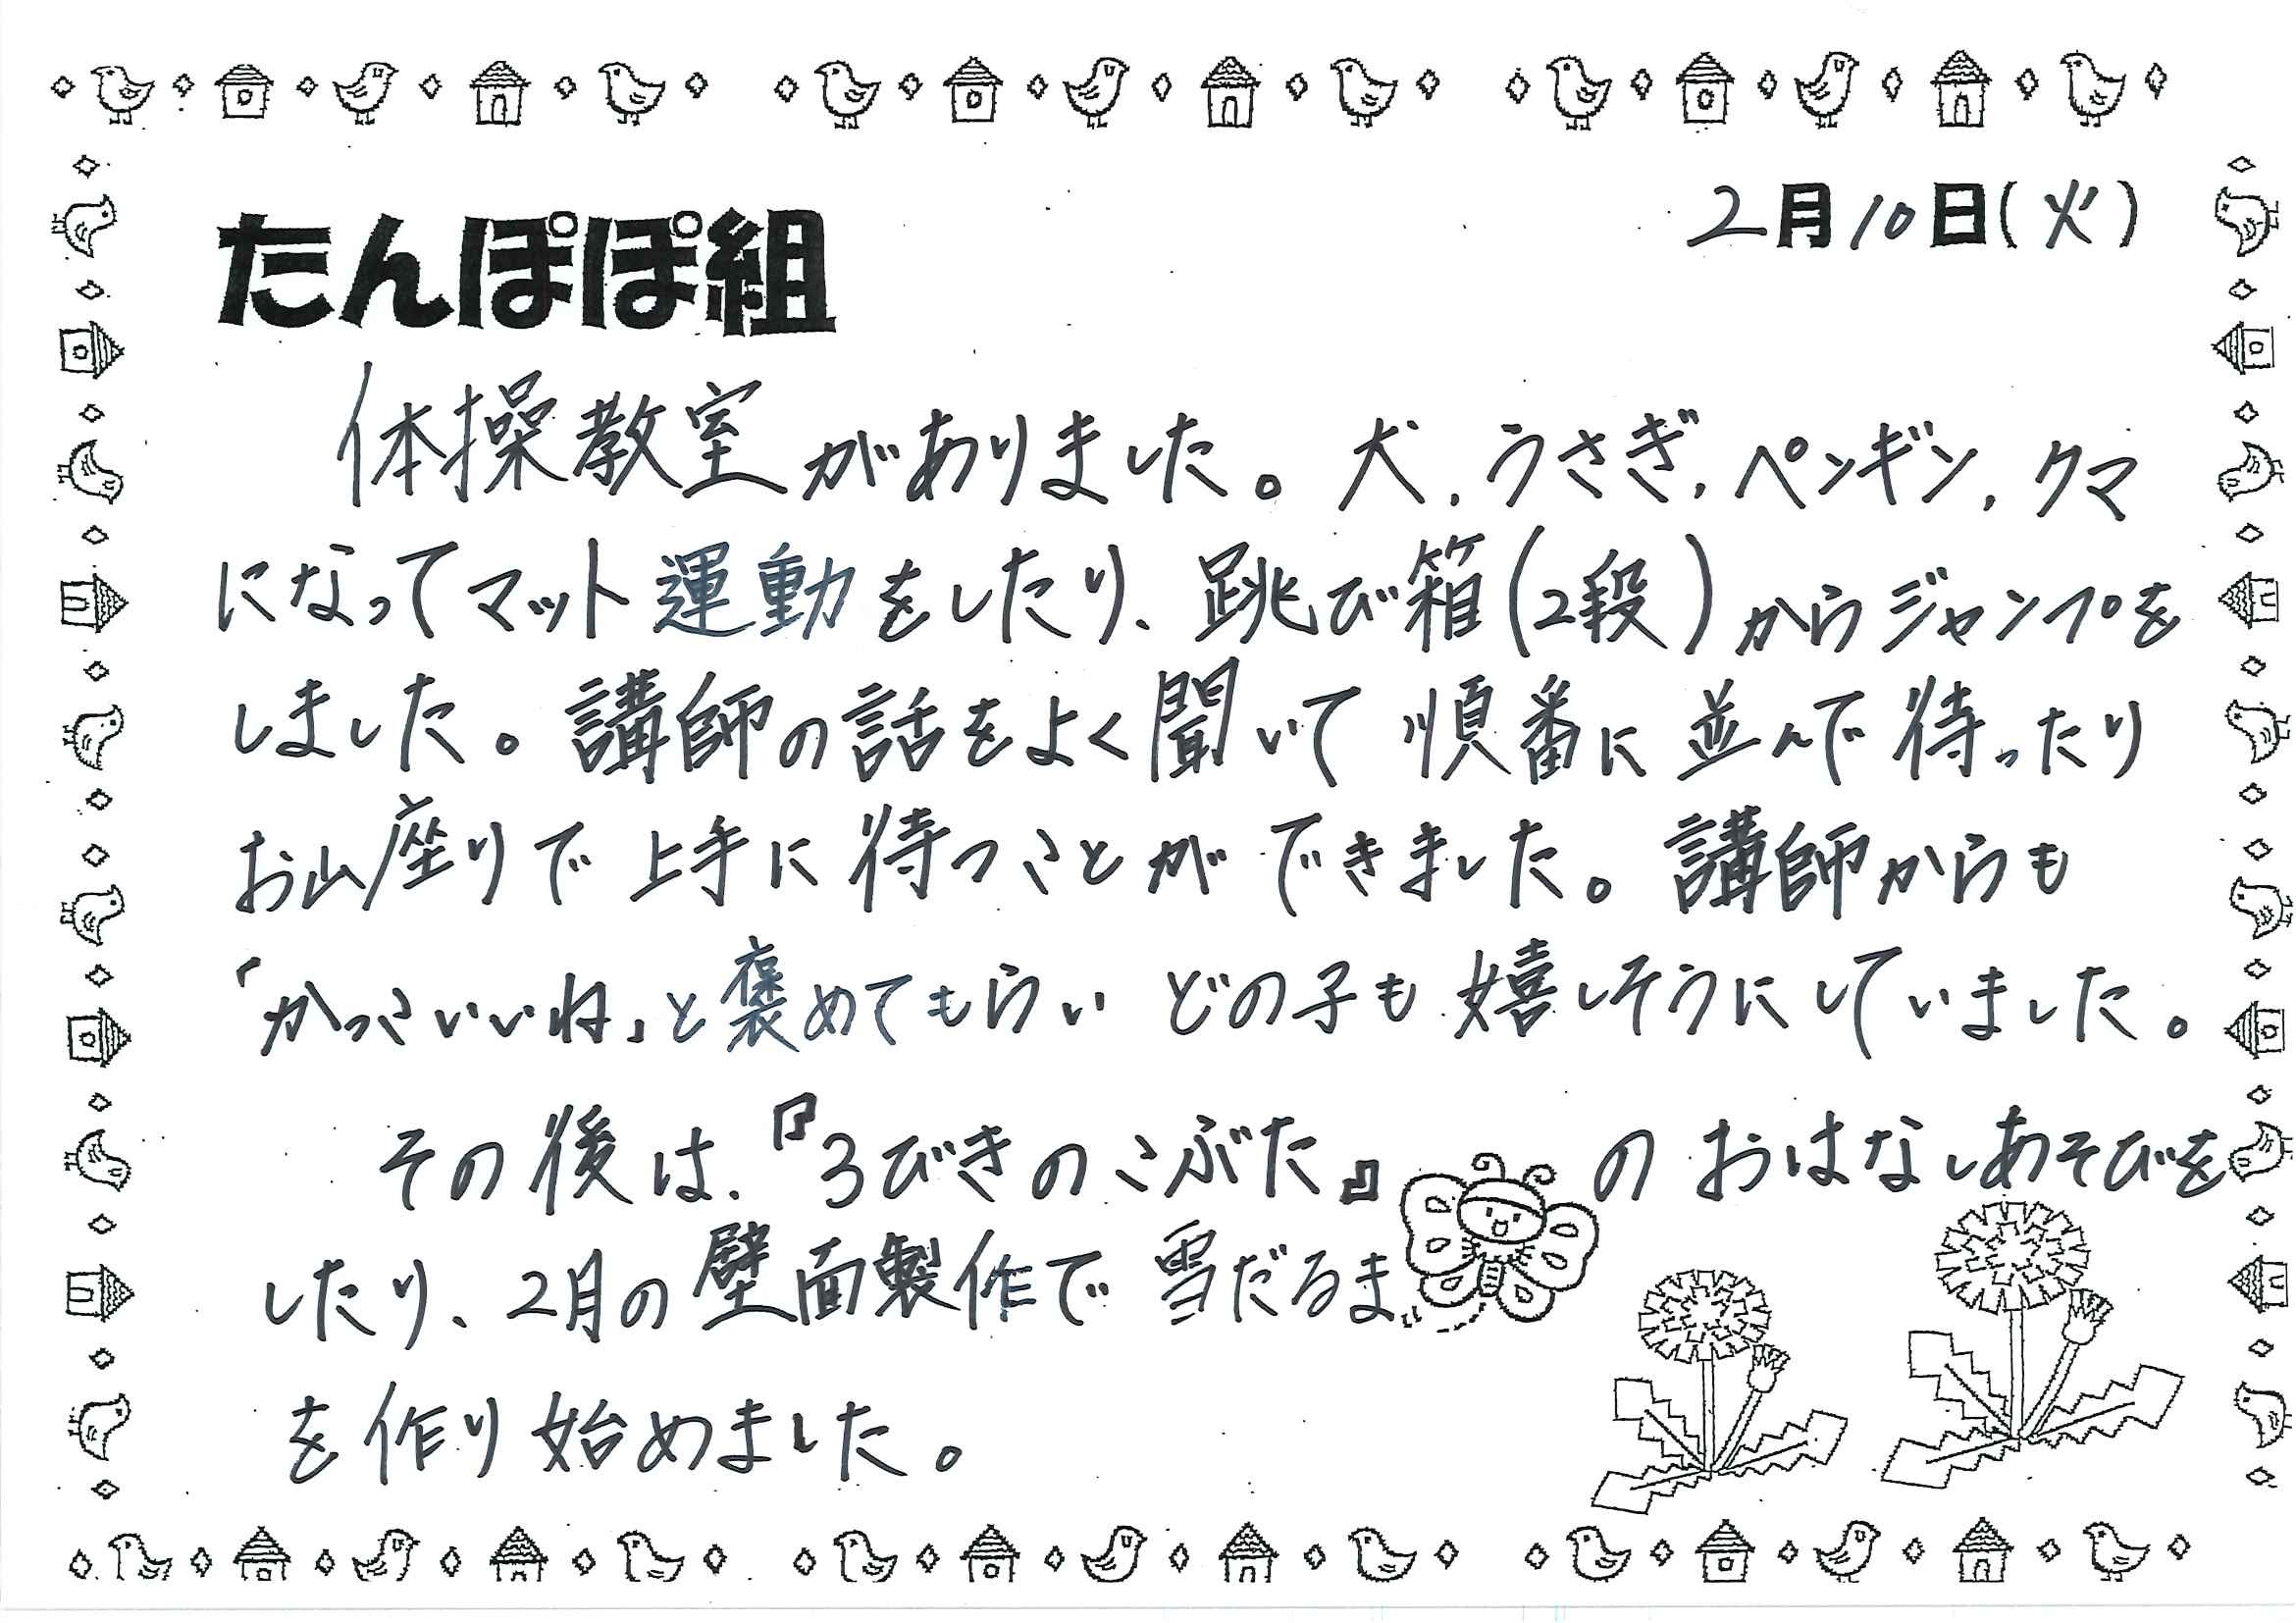 2月10日(火)
たんぽぽ組
体操教室がありました。犬、うさぎ、ペンギン、クマ
になってマット運動をしたり、跳び箱(2段)からジャンプを
しました。講師の話をよく聞いて順番に並んで待ったり
お山座りで上手に待つことができました。講師からも
「かっこいいね」と褒めてもらいどの子も嬉しそうにしていました。
その後は、『3びきのこぶた』のおはなしあそびを
したり、2月の壁面製作で雪だるま
を作り始めました。